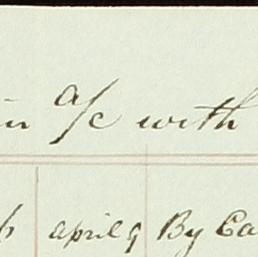 in a/c with
april 9 By Ca